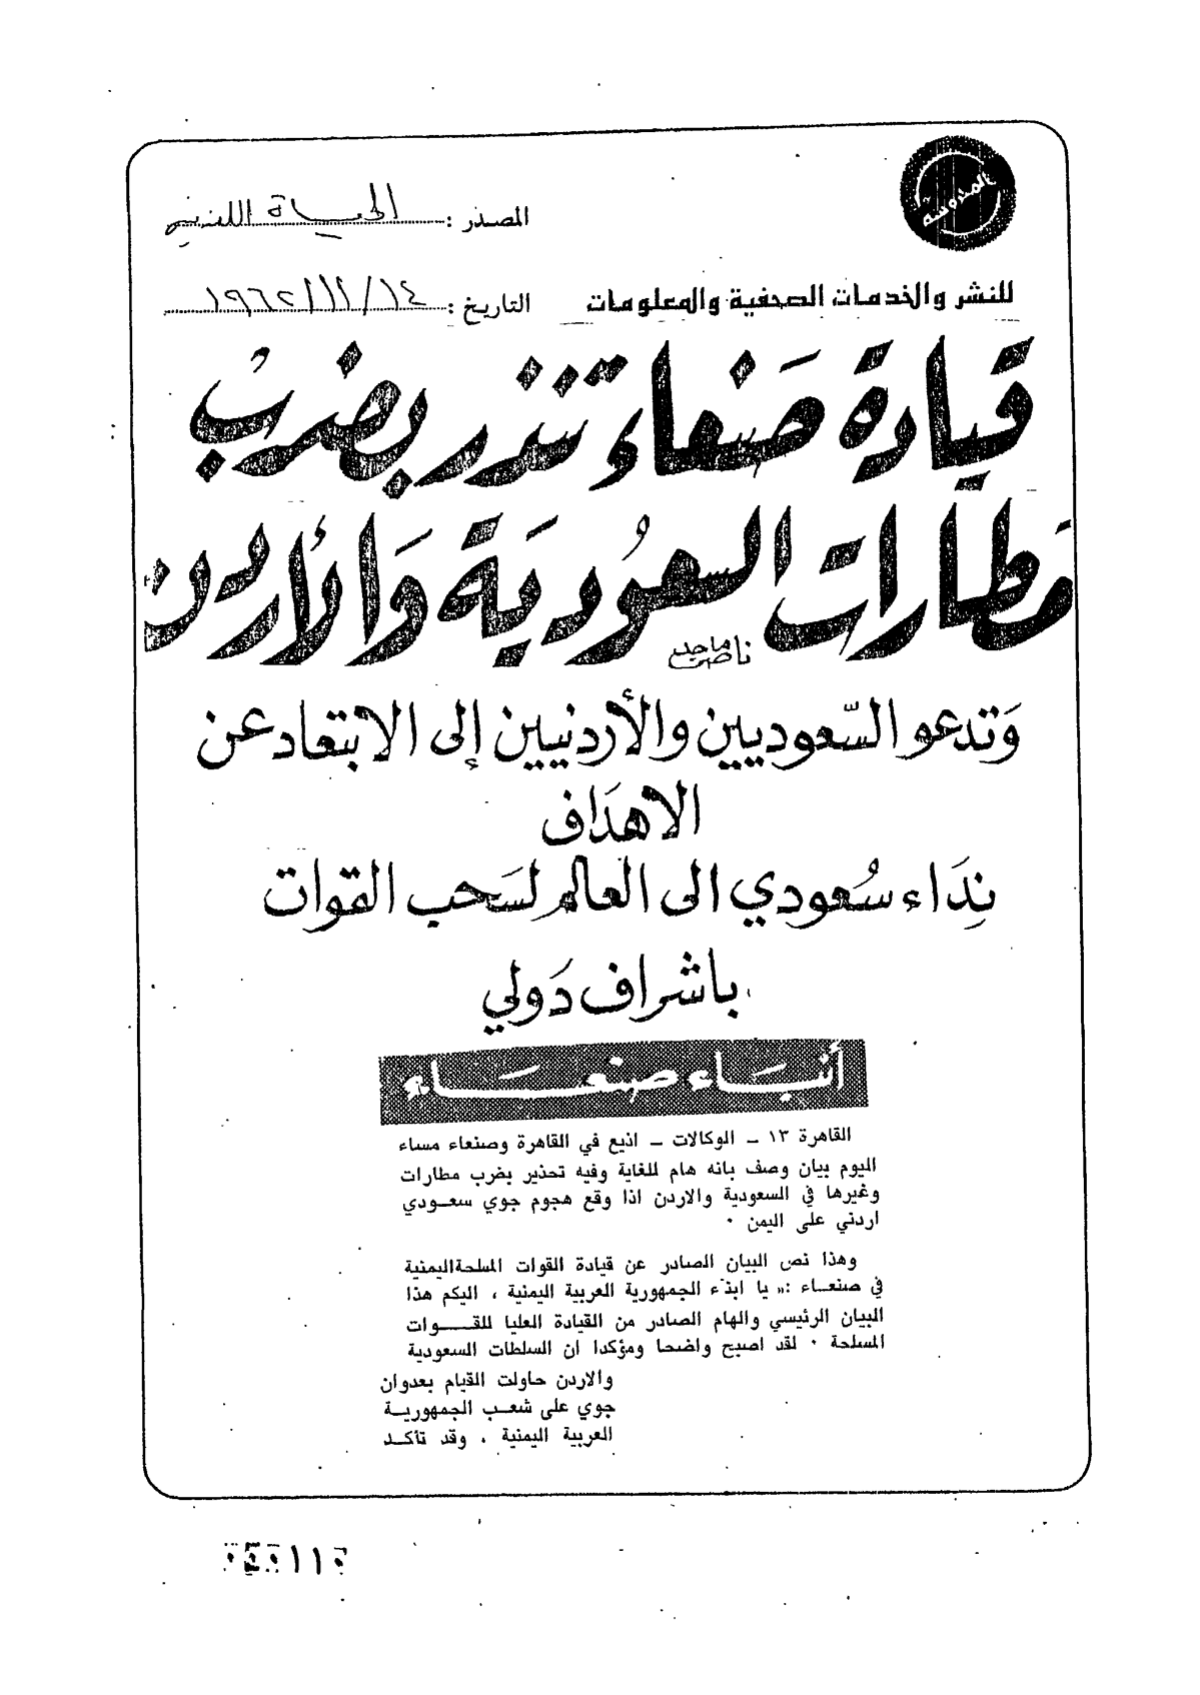 المدوسة
المصدر : الحياة اللندنية
للنشر والخدمات الصحفية والمعلومات
التاريخ : ١٩٦٢/١١/١٤
قيادة صَنعاء تنذر بضربُ
مَطارات السعُوديَة وَالأردن
ناصر ماجد
وَتدعو السّعوديين والأردنيين إلى الابتعاد عن
الاهدَاف
نِدَاء سعُودي الى العالم لسَحب القوات
باشراف دَولي
أنبَاء صنعَاء
القاهرة ١٣ ـ الوكالات ـ اذيع في القاهرة وصنعاء مساء
اليوم بيان وصف بانه هام للغاية وفيه تحذير بضرب مطارات
وغيرها في السعودية والاردن اذا وقع هجوم جوي سعـودي
اردني على اليمن ٠
وهذا نص البيان الصادر عن قيادة القوات المسلحة اليمنية
في صنعـاء :« يا ابناء الجمهورية العربية اليمنية ، اليكم هذا
البيان الرئيسي والهام الصادر من القيادة العليا للقـــوات
المسلحة ٠ لقد اصبح واضحا ومؤكدا ان السلطات السعودية
والاردن حاولت القيام بعدوان
جوي على شعـب الجمهوريـة
العربية اليمنية ، وقد تأكـد